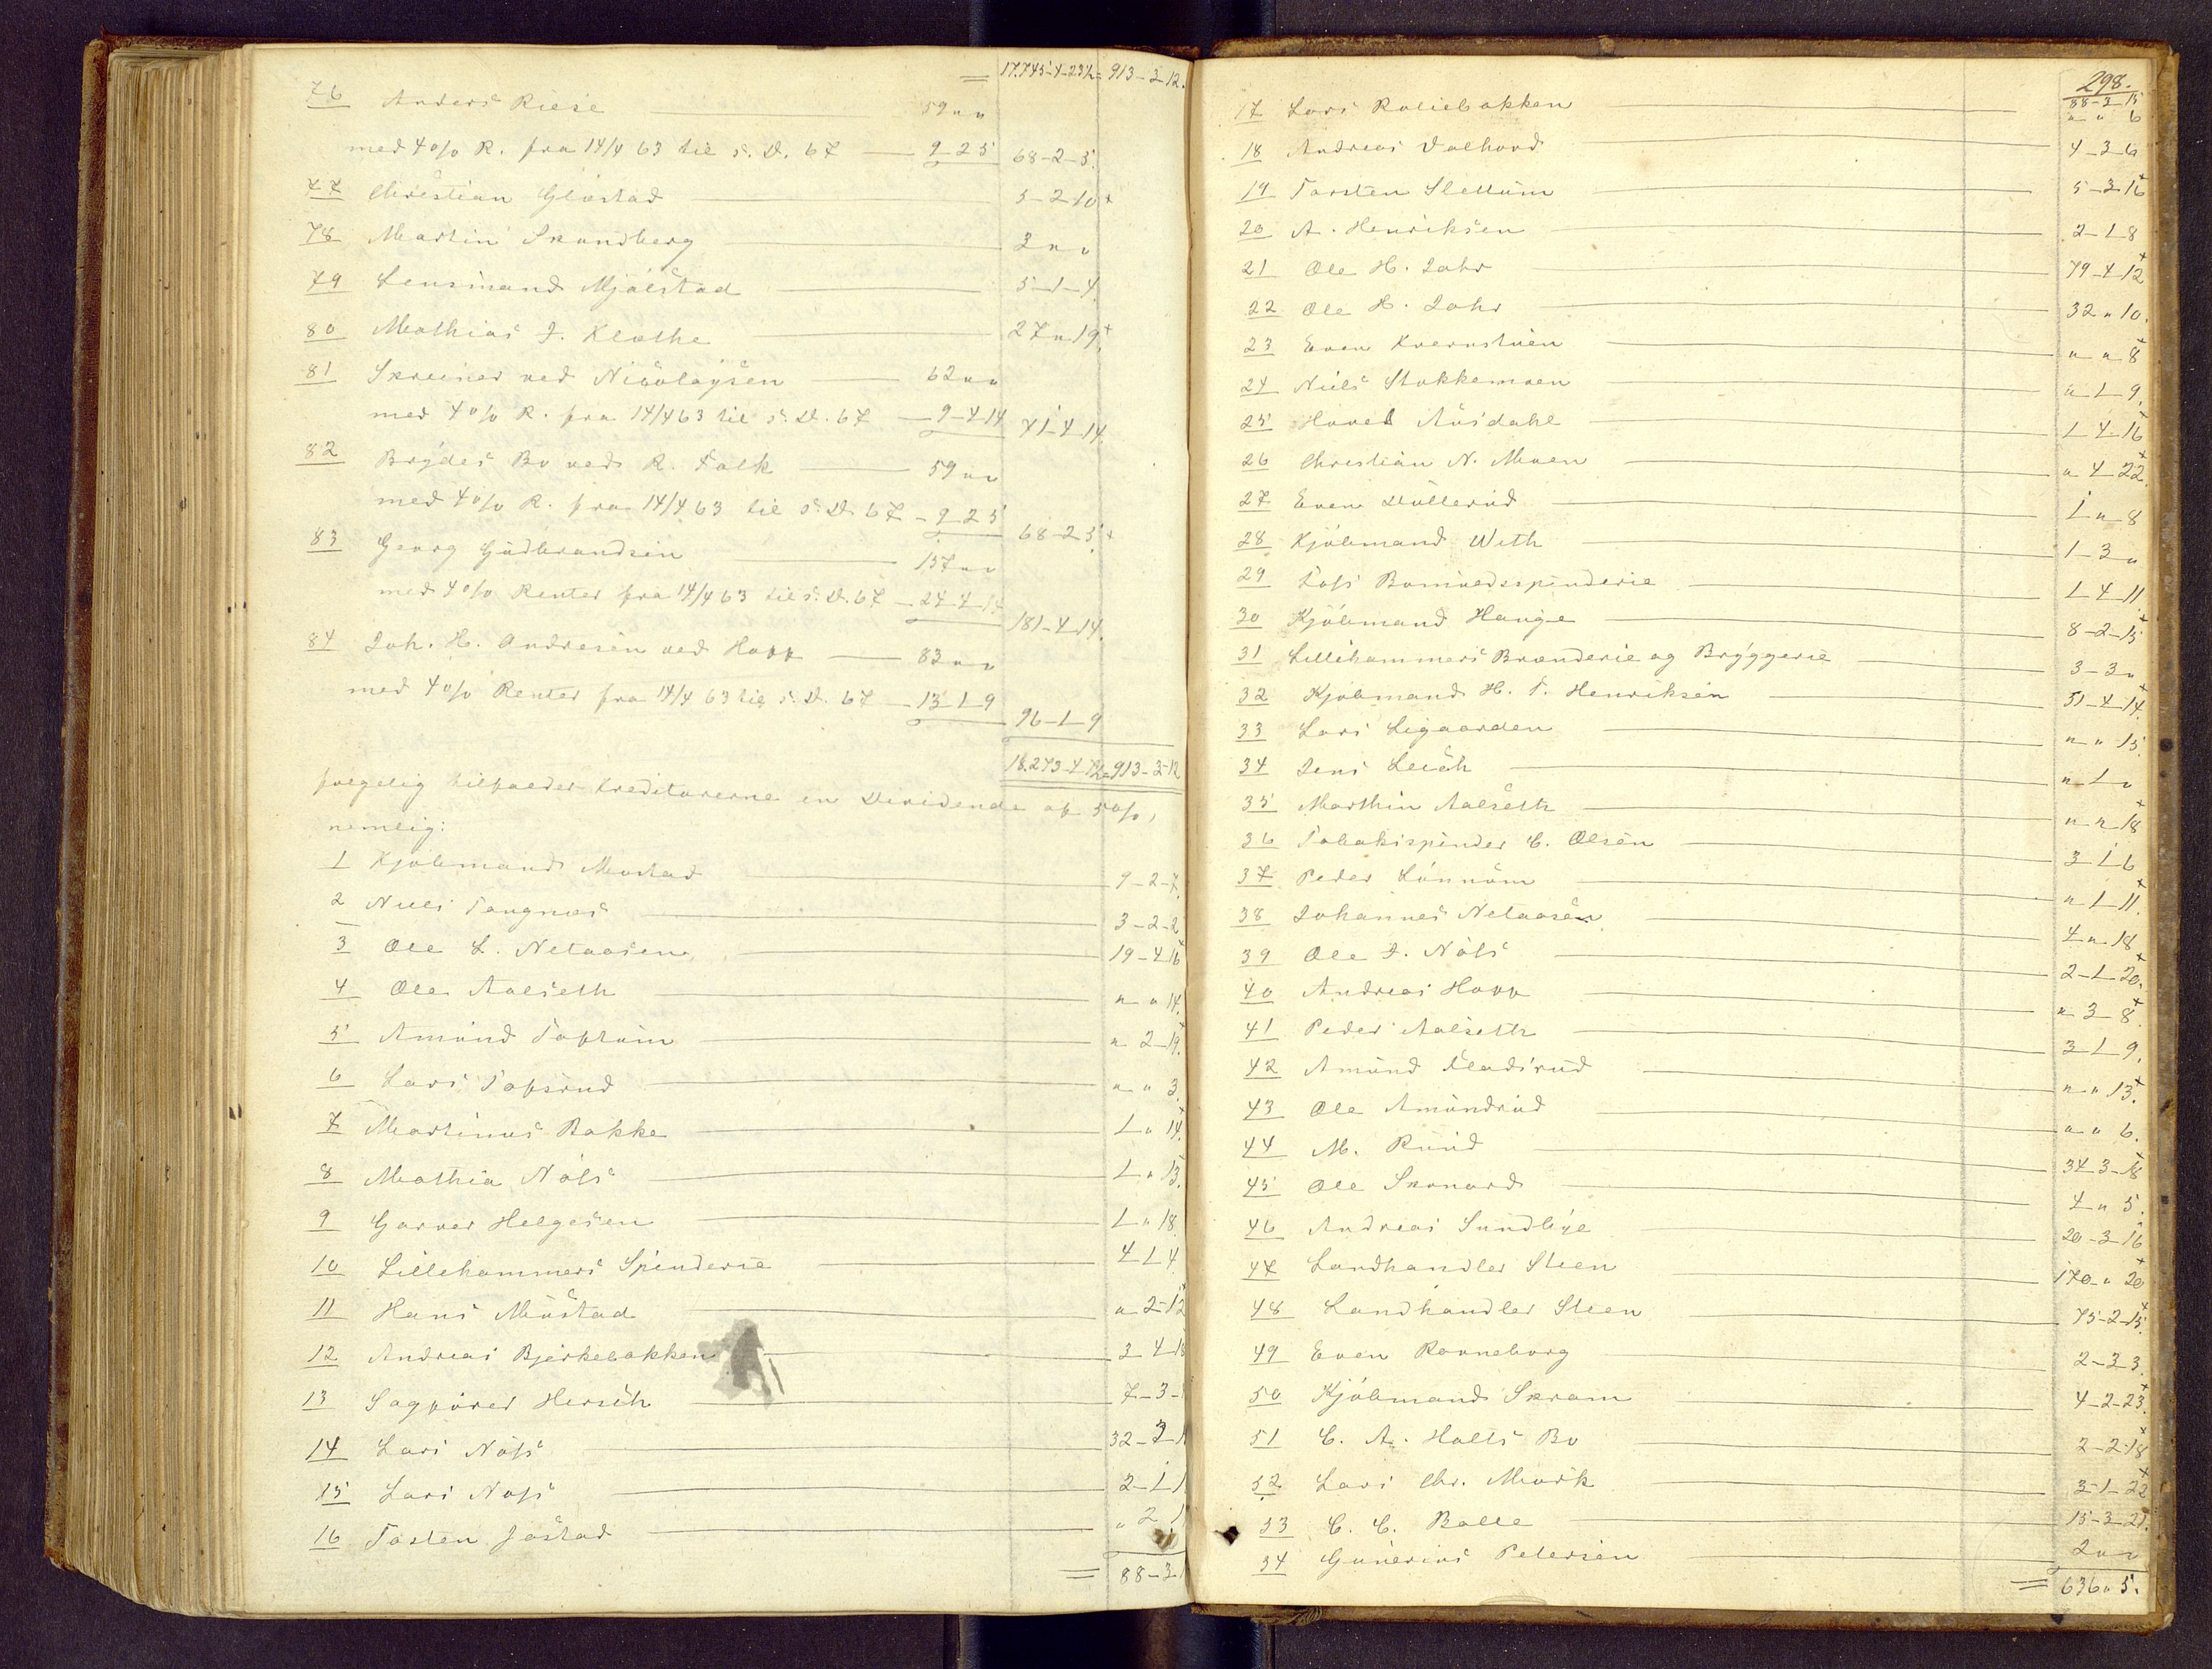 = 17.745-4-23½ = 913-3-12.
76 Anders Riese 59 " "
med 4 o/o R. fra 14/4 63 til s. D. 67 9-2 5 68-2-5.
77 Christian Glæstad 5-2 10
78 Martin Strandberg 3 " "
79 Lensmand Mjølstad 5-1-4.
80 Mathias J. Klæthe 27 " 19.
81 Skreiner ved Nicolaysen 62 " "
med 4 o/o R. fra 14/4 63 til s. D. 67 9-4 14 71-4 14
82 Brydes Bo ved R. Falk 59 " "
med 4 o/o R. fra 14/4 63 til s. D. 67 9-2 5 68-2 5
83 Georg Gudbrandsen 157 " "
med 4 o/o Renter fra 14/4 63 til s. D. 67 24-4-14 181-4-14.
84 Joh. H. Andresen ved Hopp 83 " "
med 4 o/o Renter fra 14/4 63 til s. D. 67 13-1-9 96-1-9
18.273-4 ½ = 913-3-12
følgelig tilfalder Kreditorerne en Dividende af 5 o/o,
nemlig:
1 Kjøbmand Mustad 9-2-7.
2 Niels Tangnæs 3-2-2
3 Ole L. Netaasen 19-4 16
4 Ole Aalseth " " 14.
5 Amund Toftum " 2-19.
6 Lars Topsrud " " 3.
7 Martinus Bakke 1 " 14.
8 Mathia Nøss 1 " 13.
9 Garver Helgesen 1 " 18
10 Lillehammers Spinderie 4 1 4
11 Hans Mustad " 2-12
12 Andreas Bjerkebakken 3 4
13 Sagfører Hersch 7-3-
14 Lars Nøss 32-
15 Lars Nøss 2-1
16 Tosten Jøstad " 2
= 88-3
298.
88-3 15
17 Lars Roliebakken " " 6
18 Andreas Dalhoud 4-3-6
19 Torsten Slettum 5-3 16
20 A. Henriksen 2-1 8
21 Ole H. Lohr 79-4 12
22 Ole H. Lohr 32 " 10.
23 Even Kvernstuen " " 8
24 Niels Stokkemoen " 1 9.
25 Hovel Aasdahl 1 4 16
26 Christian N. Moen " 4 22.
27 Even Dullerud 1 " 8
28 Kjøbmand Weth 1-3 "
29 Foss Bomuldsspinderie 1 4 11
30 Kjøbmand Hauge 8-2-15
31 Lillehammers Brænderie og Bryggerie 3-3 "
32 Kjøbmand H. T. Henriksen 51-4 14
33 Lars Ligaarden " " 15.
34 Jens Leich " 1 "
35 Marthin Aalseth " " 18
36 Tobakspinder C. Olsen 3 1 6
37 Peder Lønnum " 1 11.
38 Johannes Netaasen 4 " 18
39 Ole J. Nøss 2-1 20.
40 Andreas Hopp " 3 8.
41 Peder Aalseth 3 1 9.
42 Amund Fladsrud " " 13.
43 Ole Amundrud " " 6.
44 M. Ruud 34 3-18
45 Ole Skonord 4 " 5.
46 Andreas Sundbye 20-3 16
47 Landhandler Steen 170 " 20
48 Landhandler Steen 75-2-15.
49 Even Ronneborg 2-3 3.
50 Kjøbmand Skram 4-2-23.
51 C. A. Holts Bo 2-2 18
52 Lars Chr. Mørk 3-1-22
53 C. C. Bolle 15-3-21.
54 Gunerius Petersen 2 " "
= 636 " 5.